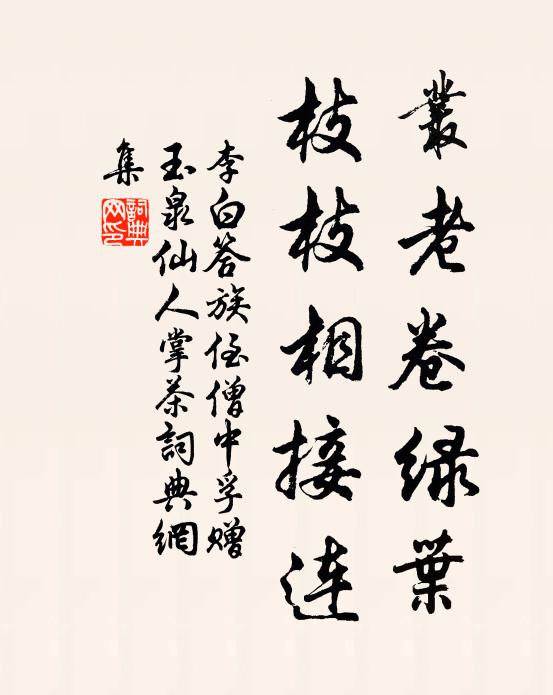 叢老卷绿葉
枝枝相接連
李白答族侄僧中孚赠
玉泉仙人掌茶詞典網
集
詞典网印